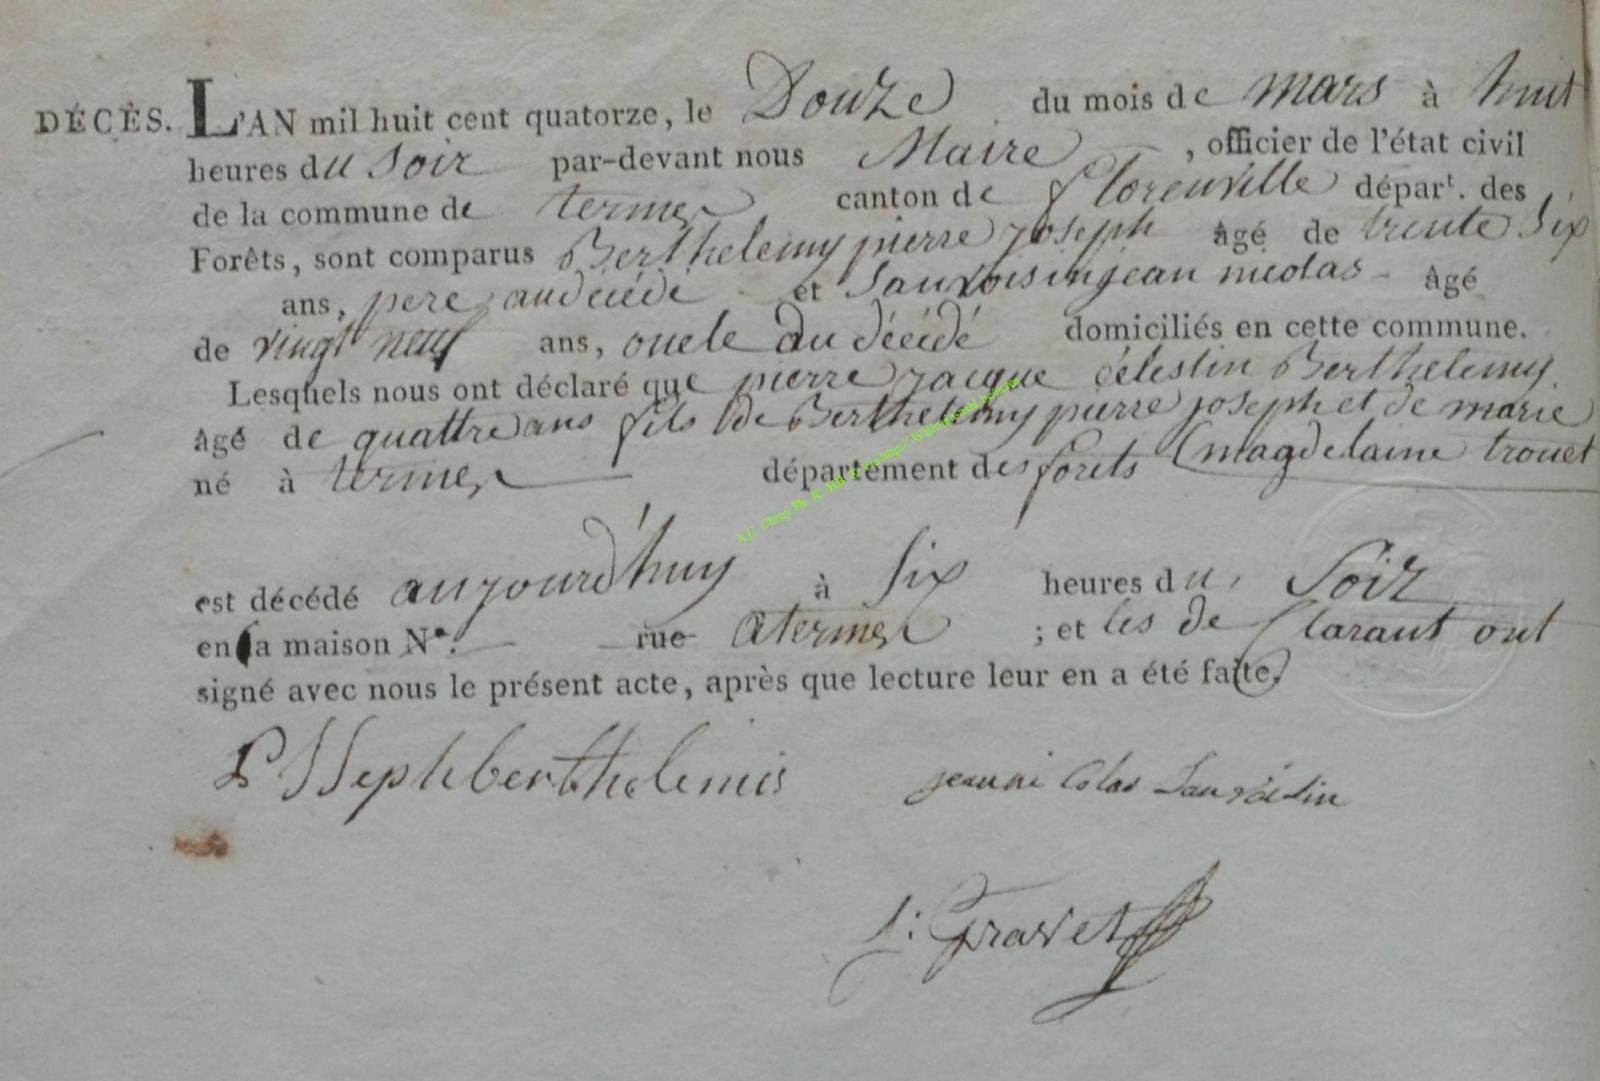 DÉCÈS. L'AN mil huit cent quatorze, le Douze du mois de mars à huit
heures du soir par-devant nous Maire, officier de l'état civil
de la commune de termes canton de florenville départ. des
Forêts, sont comparus Berthelemy pierre joseph âgé de trente six
ans, pere au décédé et Sauvoisin jean nicolas âgé
de vingt neuf ans, oncle du décédé domiciliés en cette commune.
Lesquels nous ont déclaré que pierre jacque célestin Berthelemy
âgé de quattre ans fils de Berthelemy pierre joseph et de marie
né à termes département des forets (magdelaine trouet
est décédé aujourd'huy à six heures du soir
en sa maison N°. rue a termes ; et les de Clarant ont
signé avec nous le présent acte, après que lecture leur en a été faite.
berthelemis jeanni colas Sauvoisin
Gravet